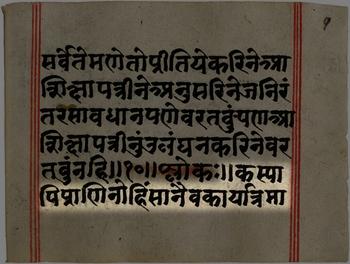 सर्वेतेमणेतोप्रीतियेकरिनेआ
शिक्षापत्रीनेअनुसरिनेजनिरं
तरसावधानपणेवरतवुंपणआ
शिक्षापत्रीनुंउलंघनकरिनेवर
तवुंनहि॥१०॥श्लोकः॥कस्या
पिप्राणिनोहिंसानैवकार्यात्रमा